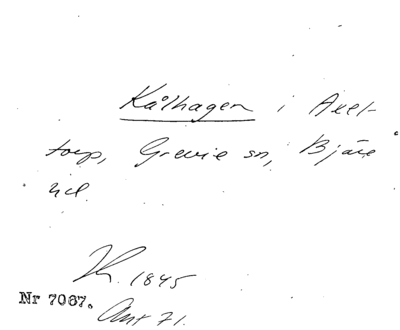 Kålhagen i Axel-
torp, Grevie sn, Bjäre
hd.
1845
Nr 7067.
Ant 71.